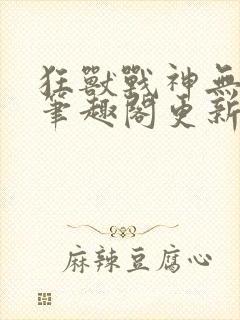 狂獸戰神無
筆趣閣更新
麻辣豆腐心